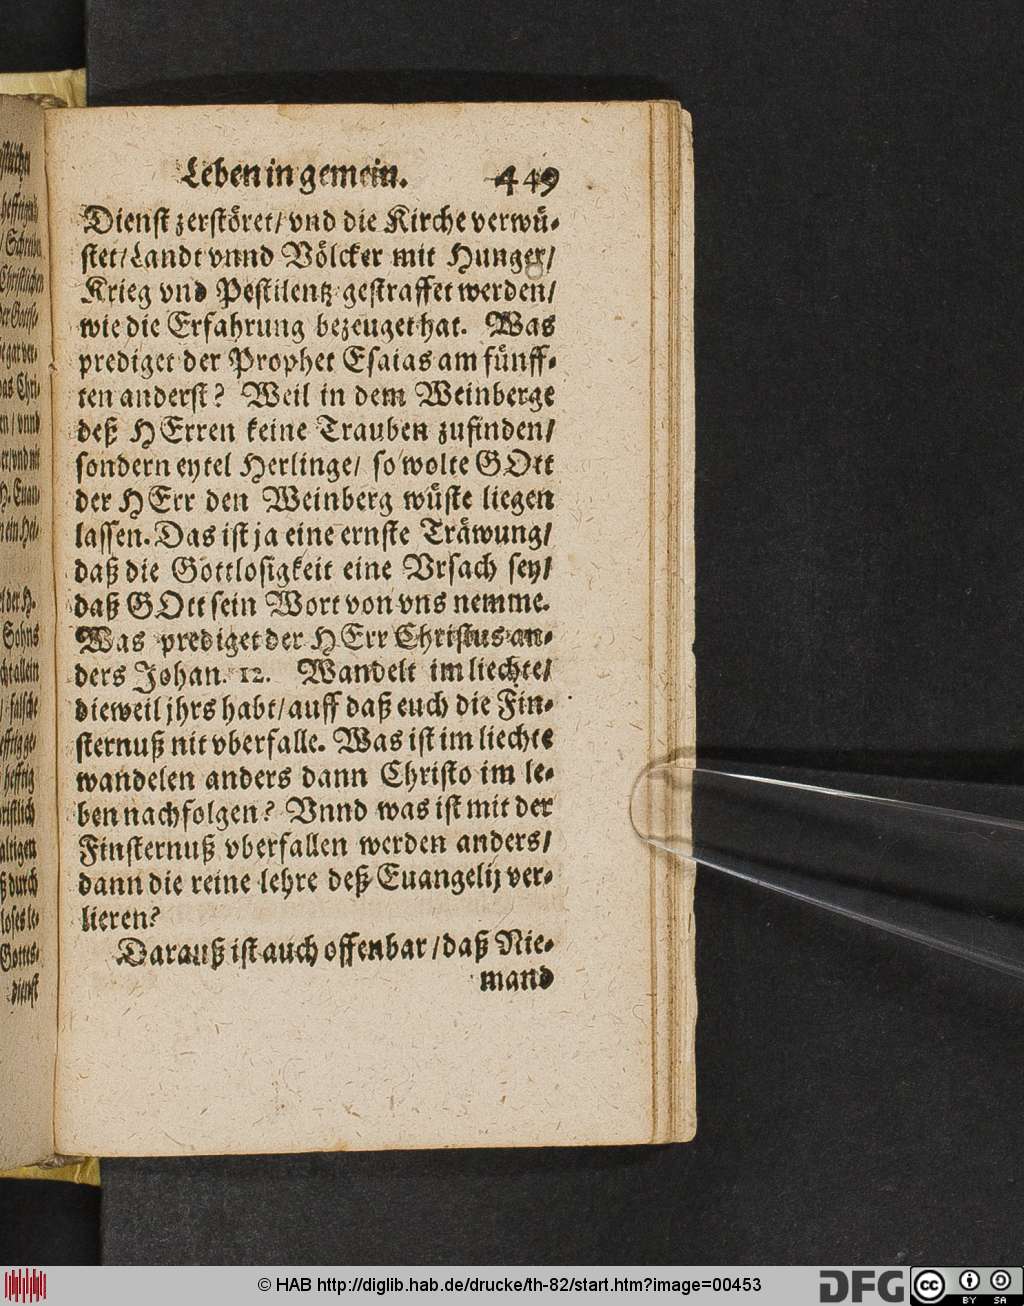 Leben in gemein. 449
Dienst zerstöret/ vnd die Kirche verwü-
stet/ Landt vnnd Völcker mit Hunger/
Krieg vnd Pestilentz gestraffet werden/
wie die Erfahrung bezeuget hat. Was
prediget der Prophet Esaias am fünff-
ten anderst? Weil in dem Weinberge
deß HErren keine Trauben zufinden/
sondern eytel Herlinge/ so wolte GOtt
der HErr den Weinberg wüste liegen
lassen. Das ist ja eine ernste Träwung/
daß die Gottlosigkeit eine Vrsach sey/
daß GOtt sein Wort von vns nemme.
Was prediget der HErr Christus an-
ders Johan. 12. Wandelt im liechte/
dieweil jhrs habt/ auff daß euch die Fin-
sternuß nit vberfalle. Was ist im liechte
wandelen anders dann Christo im le-
ben nachfolgen? Vnnd was ist mit der
Finsternuß vberfallen werden anders/
dann die reine lehre deß Euangelij ver-
lieren?
Darauß ist auch offenbar/ daß Nie-
mand
© HAB http://diglib.hab.de/drucke/th-82/start.htm?image=00453
DFG
cc BY SA